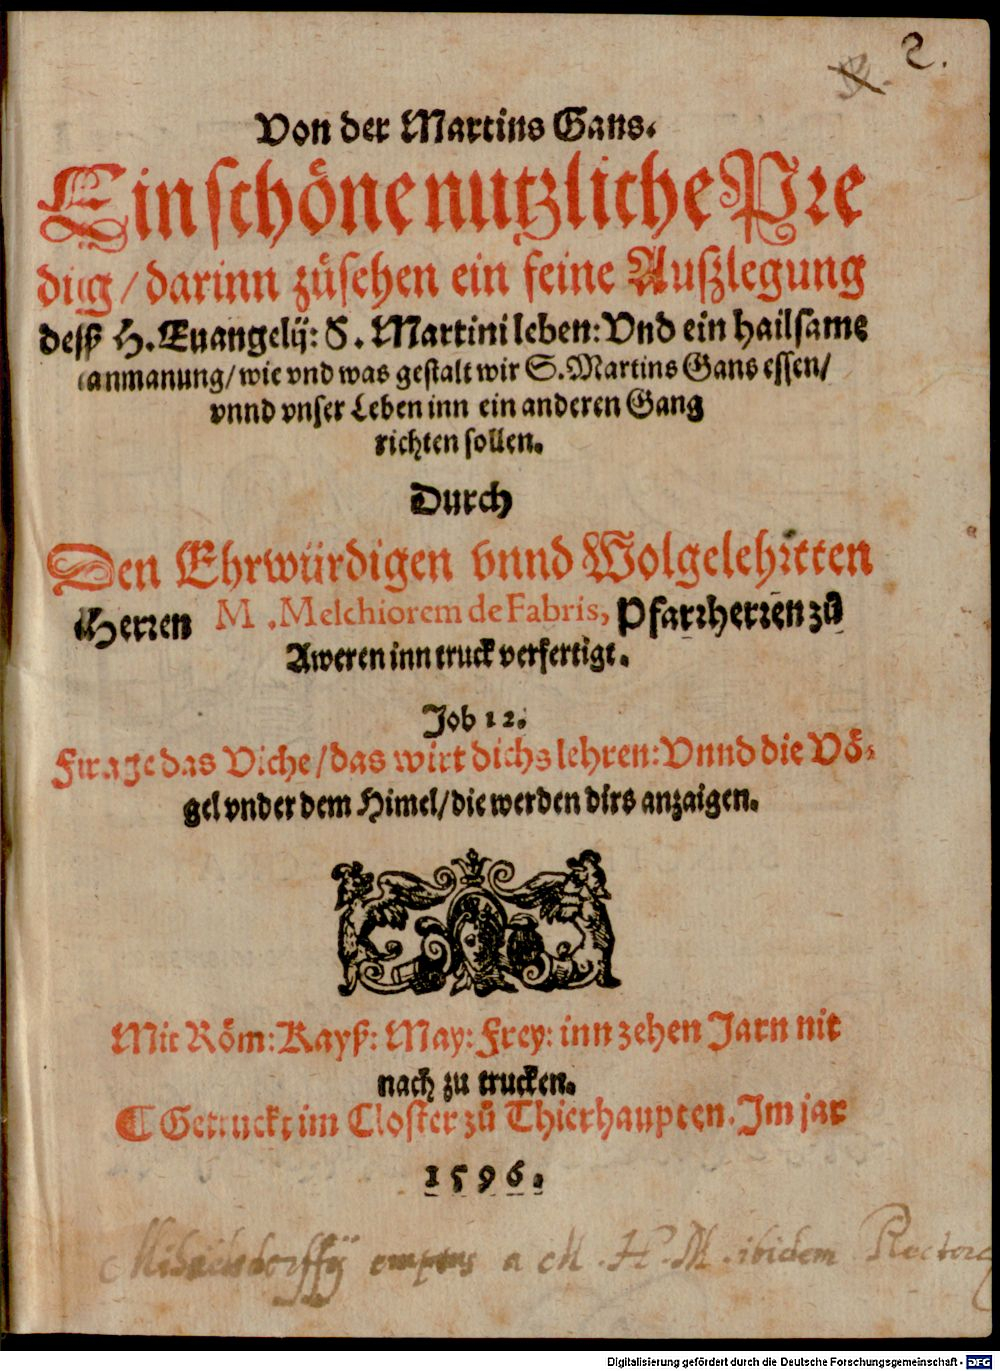 2.
Von der Martins Gans.
Ein schöne nutzliche Pre
dig / darinn zůsehen ein feine Außlegung
deß H. Euangelij: S. Martini leben: Vnd ein hailsame
anmanung / wie vnd was gestalt wir S. Martins Gans essen /
vnnd vnser Leben inn ein anderen Gang
richten sollen.
Durch
Den Ehrwürdigen vnnd Wolgelehrtten
Herren M. Melchiorem de Fabris, Pfarrherren zů
Aweren inn truck verfertigt.
Job 12.
Frage das Viche / das wirt dichs lehren: Vnnd die Vö-
gel vnder dem Himel / die werden dirs anzaigen.
Mit Röm: Kayß: May: Frey: inn zehen Jarn nit
nach zu trucken.
¶ Getruckt im Closter zů Thierhaupten. Im jar
1596.
a M. H. M. ibidem Rectore
Digitalisierung gefördert durch die Deutsche Forschungsgemeinschaft - DFG